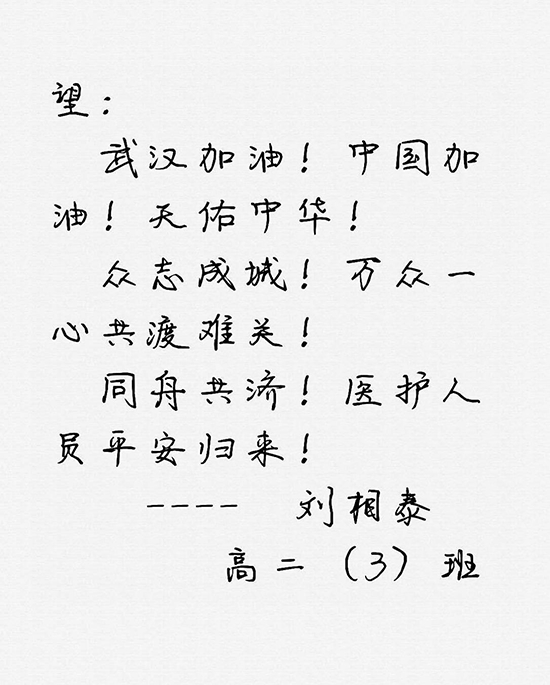 望：
武汉加油！中国加
油！天佑中华！
众志成城！万众一
心共渡难关！
同舟共济！医护人
员平安归来！
---- 刘相泰
高二（3）班